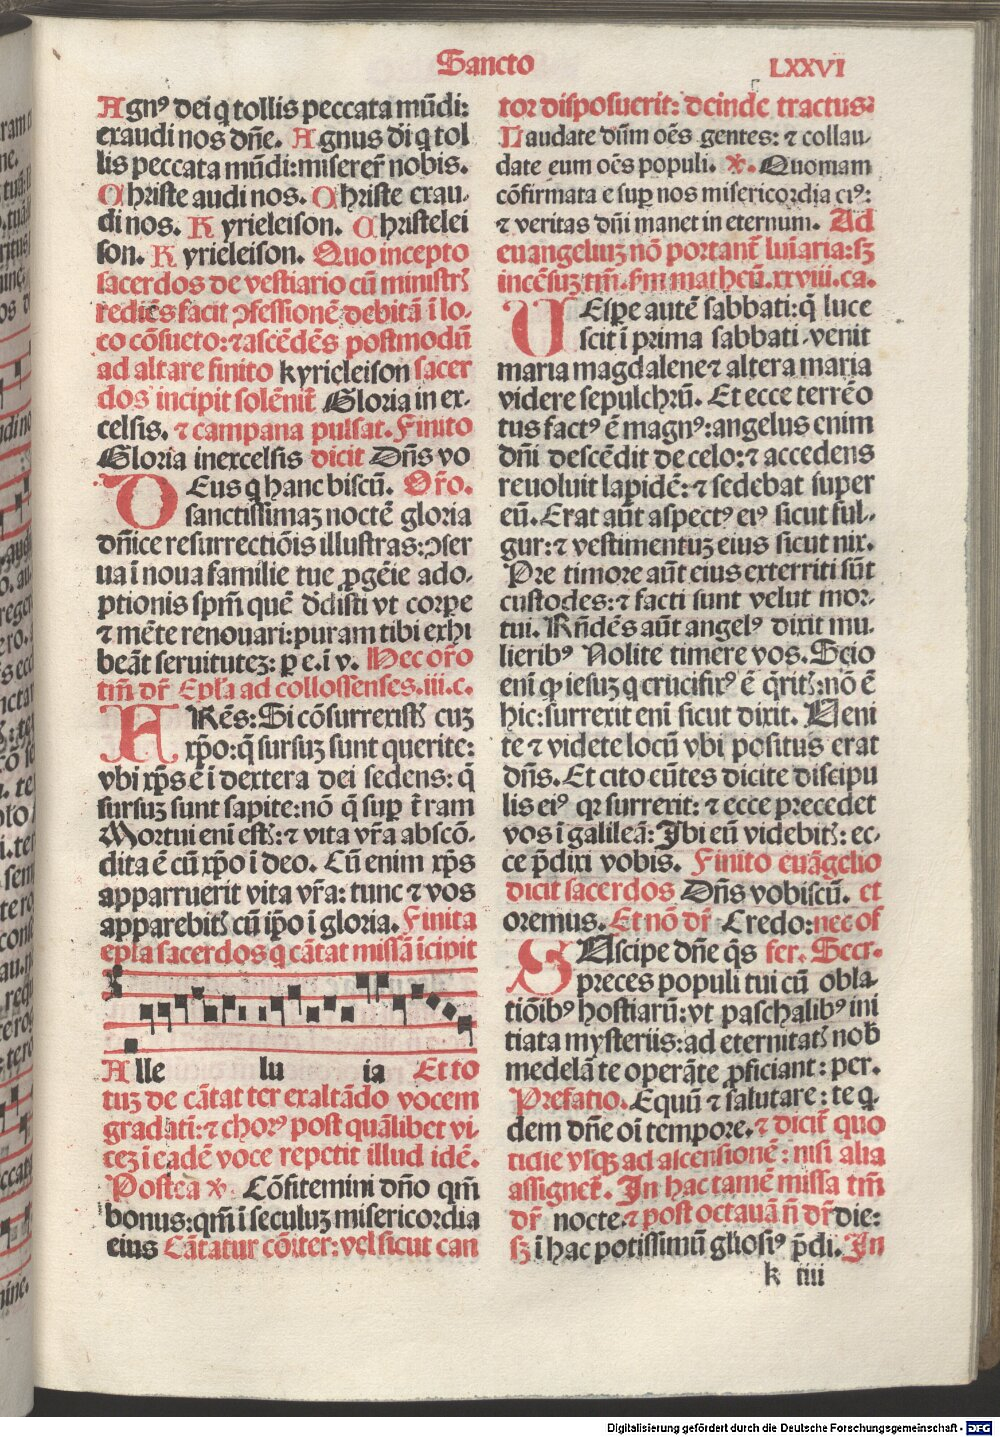 Sancto
LXXVI
Agnꝰ dei q̄ tollis peccata mūdi:
exaudi nos dñe. Agnus di q̄ tol
lis peccata mūdi: miserer̄ nobis.
Christe audi nos. Christe exau-
di nos. Kyrieleison. Christelei
son. Kyrieleison. Quo incepto
sacerdos de vestiario cū ministrꝭ
rediēs facit ꝯfessionē debitā ī lo-
co cōsueto: ⁊ ascēdēs postmodū
ad altare finito kyrieleison sacer
dos incipit solēnit̄ Gloria in ex-
celsis. ⁊ campana pulsat. Finito
Gloria inexcelsis dicit Dñs vo
DEus q̄ hanc biscū. Oro.
sanctissimaꝫ noctē gloria
dñice resurrectiōis illustras: ꝯser
ua ī noua familie tue ꝓgēie ado-
ptionis spm̄ quē dedisti vt corpe
⁊ mēte renouari: puram tibi exhi
beāt seruitutez: p e. i v. Hec oro
tm̄ dr̄ Epl̄a ad collossenses. iii. c.
FRēs: Si cōsurrexistꝭ cuz
xp̄o: q̄ sursuz sunt querite:
vbi xp̄s ē ī dextera dei sedens: q̄
sursuz sunt sapite: nō q̄ sup t̄ram
Mortui enī estꝭ: ⁊ vita vr̄a abscō-
dita ē cū xp̄o ī deo. Cū enim xp̄s
apparruerit vita vr̄a: tunc ⁊ vos
apparebitꝭ cū ip̄o ī gloria. Finita
epl̄a sacerdos q̄ cātat missā īcipit
Alle lu ia Et to
tuz de cātat ter exaltādo vocem
gradatī: ⁊ chorꝰ post quālibet vi-
cez ī eadē voce repetit illud idē.
Postea ℣. Cōfitemini dño qm̄
bonus: qm̄ ī seculuz misericordia
eius Cātatur cōiter: vel sicut can
tor disposuerit: deinde tractus:
Laudate dūm oēs gentes: ⁊ collau-
date eum oēs populi. ℣. Quoniam
cōfirmata e sup nos misericordia eiꝰ:
⁊ veritas dñi manet in eternum. Ad
euangeliuz nō portant̄ luīaria: sꝫ
incēsuz tm̄. Fm matheū. xxviii. ca.
VEspe autē sabbati: q̄ luce
scit ī prima sabbati. venit
maria magdalene ⁊ altera maria
videre sepulchrū. Et ecce terrēo
tus factꝰ ē magnꝰ: angelus enim
dñi descēdit de celo: ⁊ accedens
reuoluit lapidē: ⁊ sedebat super
eū. Erat aūt aspectꝰ eiꝰ sicut ful-
gur: ⁊ vestimentuz eius sicut nix.
Pre timore aūt eius exterriti sūt
custodes: ⁊ facti sunt velut mor-
tui. Rn̄dēs aūt angelꝰ dixit mu-
lieribꝰ Nolite timere vos. Scio
enī ꝙ iesuz q crucifixꝰ ē q̄ritꝭ: nō ē
hic: surrexit enī sicut dixit. Ueni
te ⁊ videte locū vbi positus erat
dñs. Et cito eūtes dicite discipu
lis eiꝰ qr surrexit: ⁊ ecce precedet
vos ī galileā: Ibi eū videbitꝭ: ec-
ce p̄dixi vobis. Finito euāgelio
dicit sacerdos Dñs vobiscū. et
oremus. Et nō dr̄ Credo: nec of
SUscipe dñe q̄s fer. Secr.
preces populi tui cū obla-
tiōibꝰ hostiarū: vt paschalibꝰ ini
tiata mysteriis: ad eternitatꝭ nob̄
medelā te operāte ꝓficiant: per.
Prefatio. Equū ⁊ salutare: te q.
dem dñe oī tempore. ⁊ dicit̄ quo
tidie vsqꝫ ad ascensionē: nisi alia
assignet̄. In hac tamē missa tm̄
dr̄ nocte. ⁊ post octauā n̄ dr̄ die:
sꝫ ī hac potissimū gl̄iosiꝰ p̄di. In
k iiii
Digitalisierung gefördert durch die Deutsche Forschungsgemeinschaft - DFG